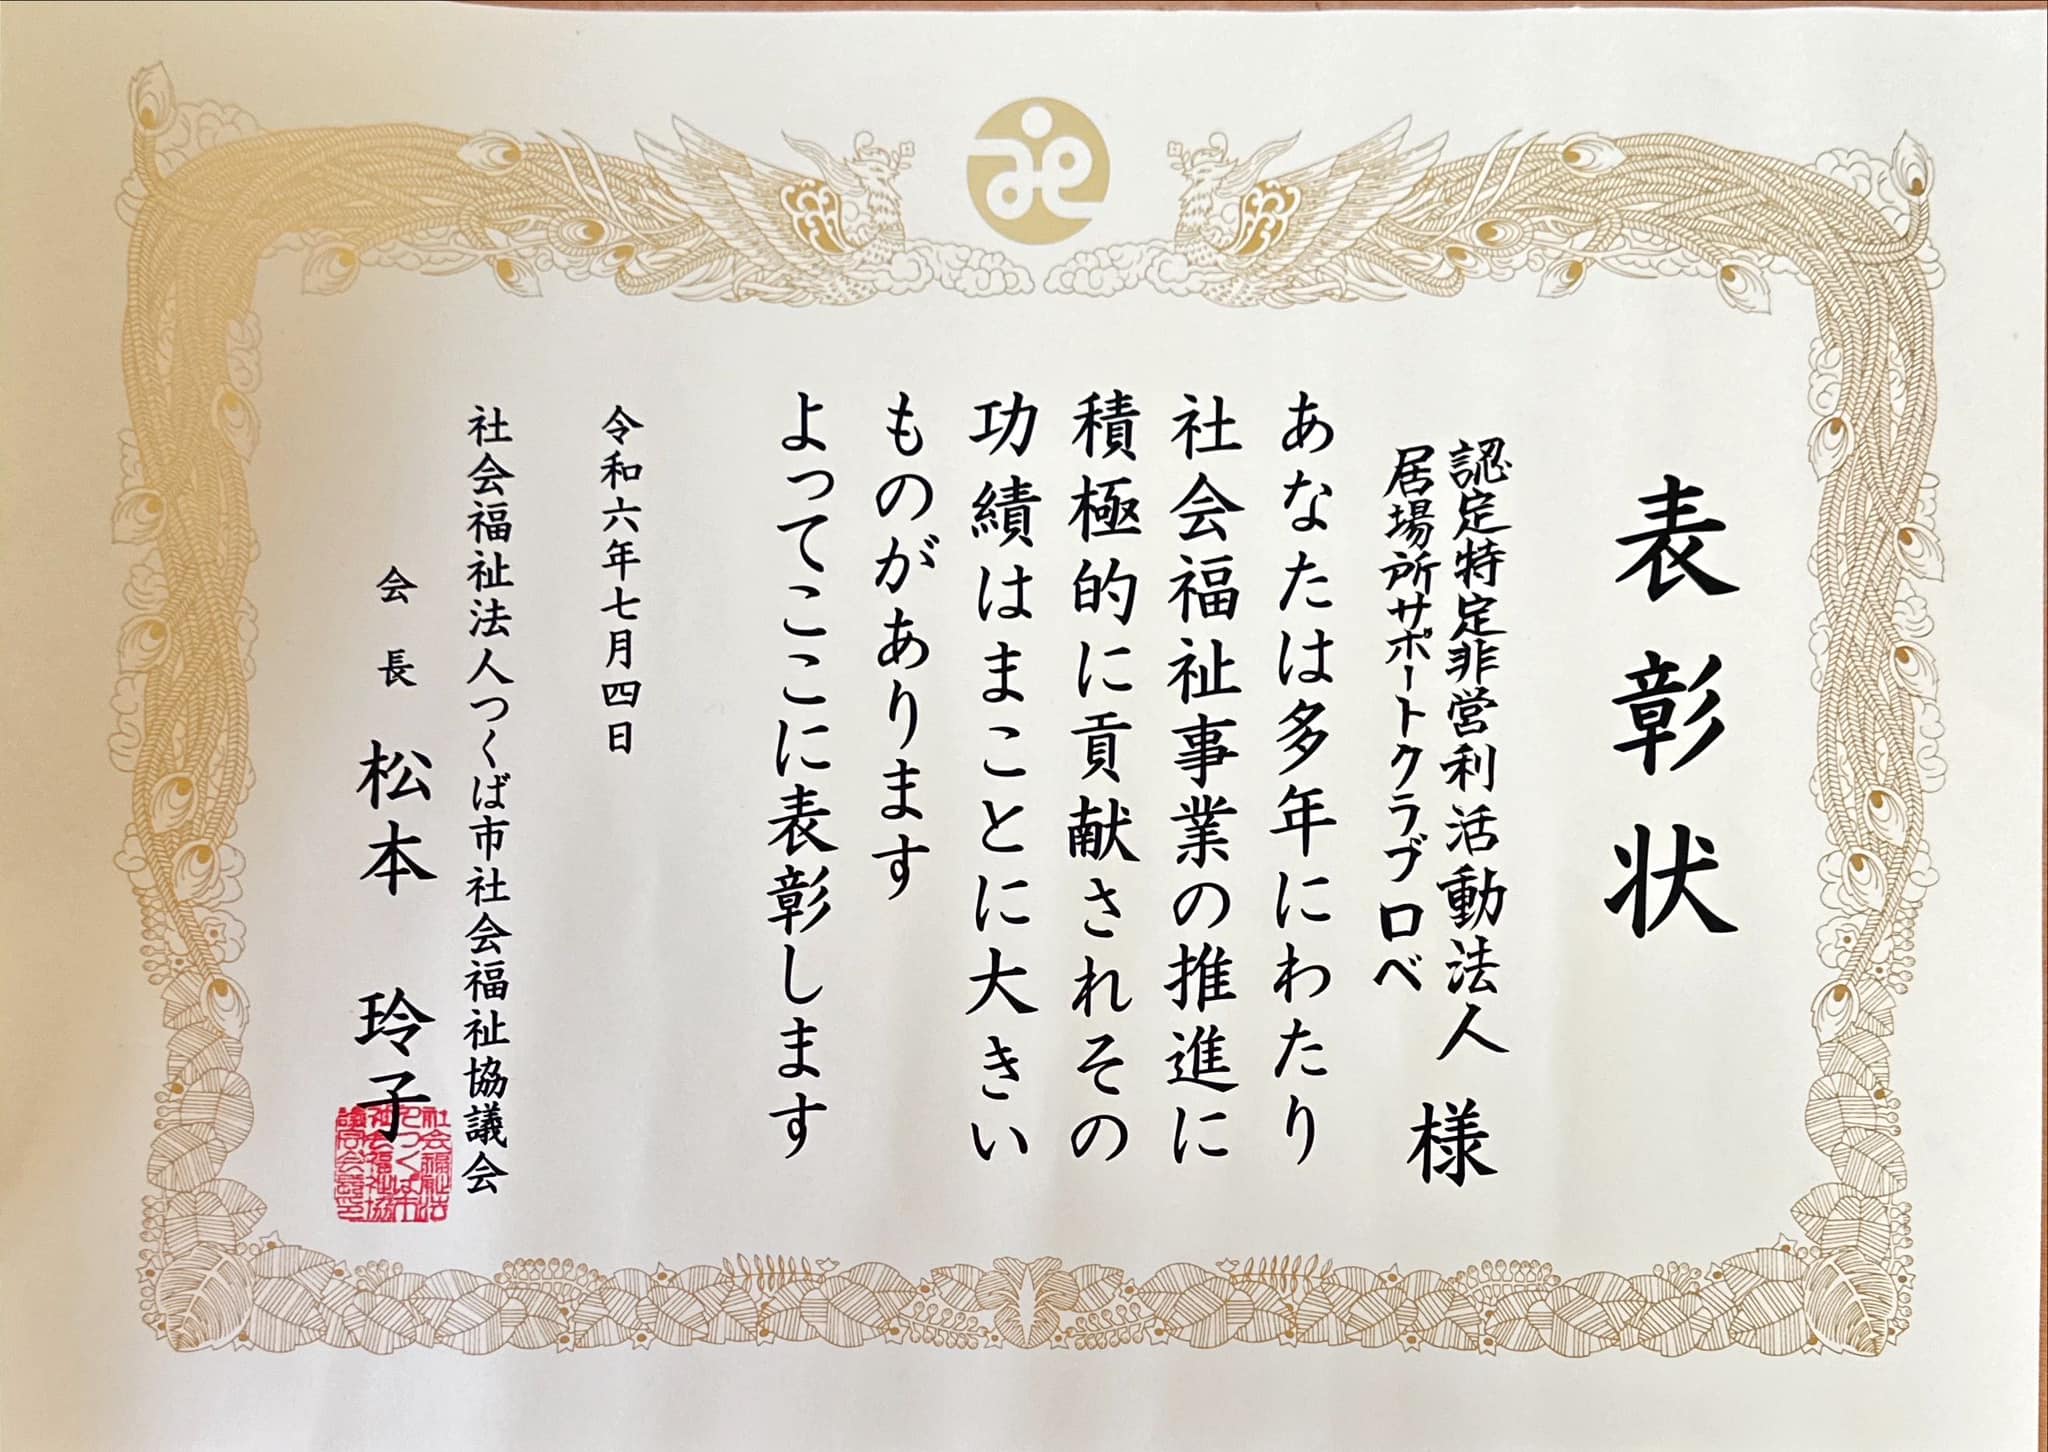 表彰状
認定特定非営利活動法人
居場所サポートクラブロベ
様
あなたは多年にわたり
社会福祉事業の推進に
積極的に貢献されその
功績はまことに大きい
ものがあります
よってここに表彰します
令和六年七月四日
社会福祉法人つくば市社会福祉協議会
会長 松本 玲子
社会福祉法
人つくば市
社会福祉協
議会会長印